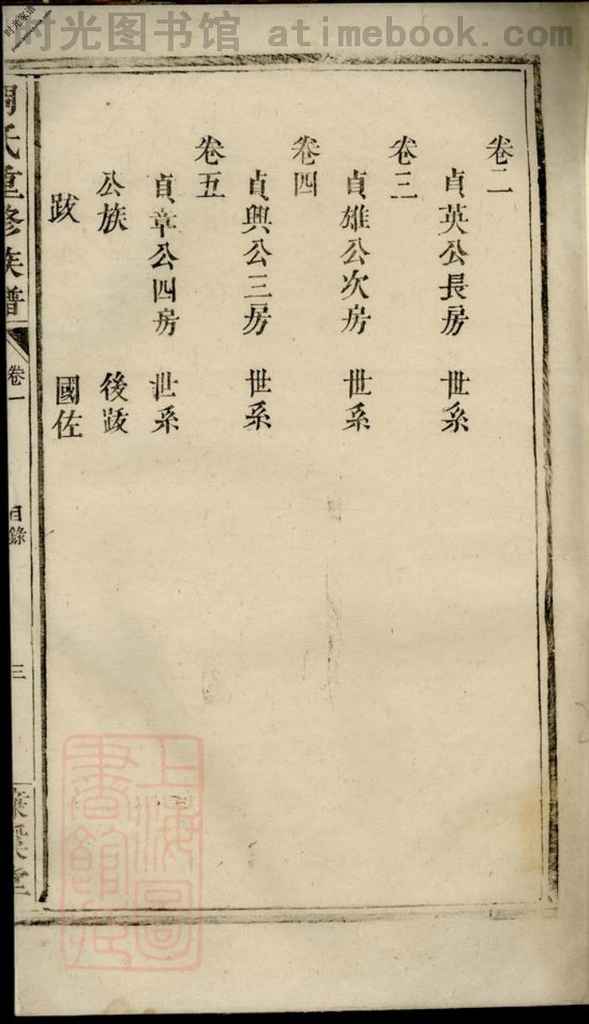 时光图书馆 atimebook.com
卷二
貞英公長房 世系
卷三
貞雄公次房 世系
卷四
貞興公三房 世系
卷五
貞章公四房 世系
公族 後跋
跋 國佐
周氏重修族譜
卷一
目錄
三
上海圖書館藏